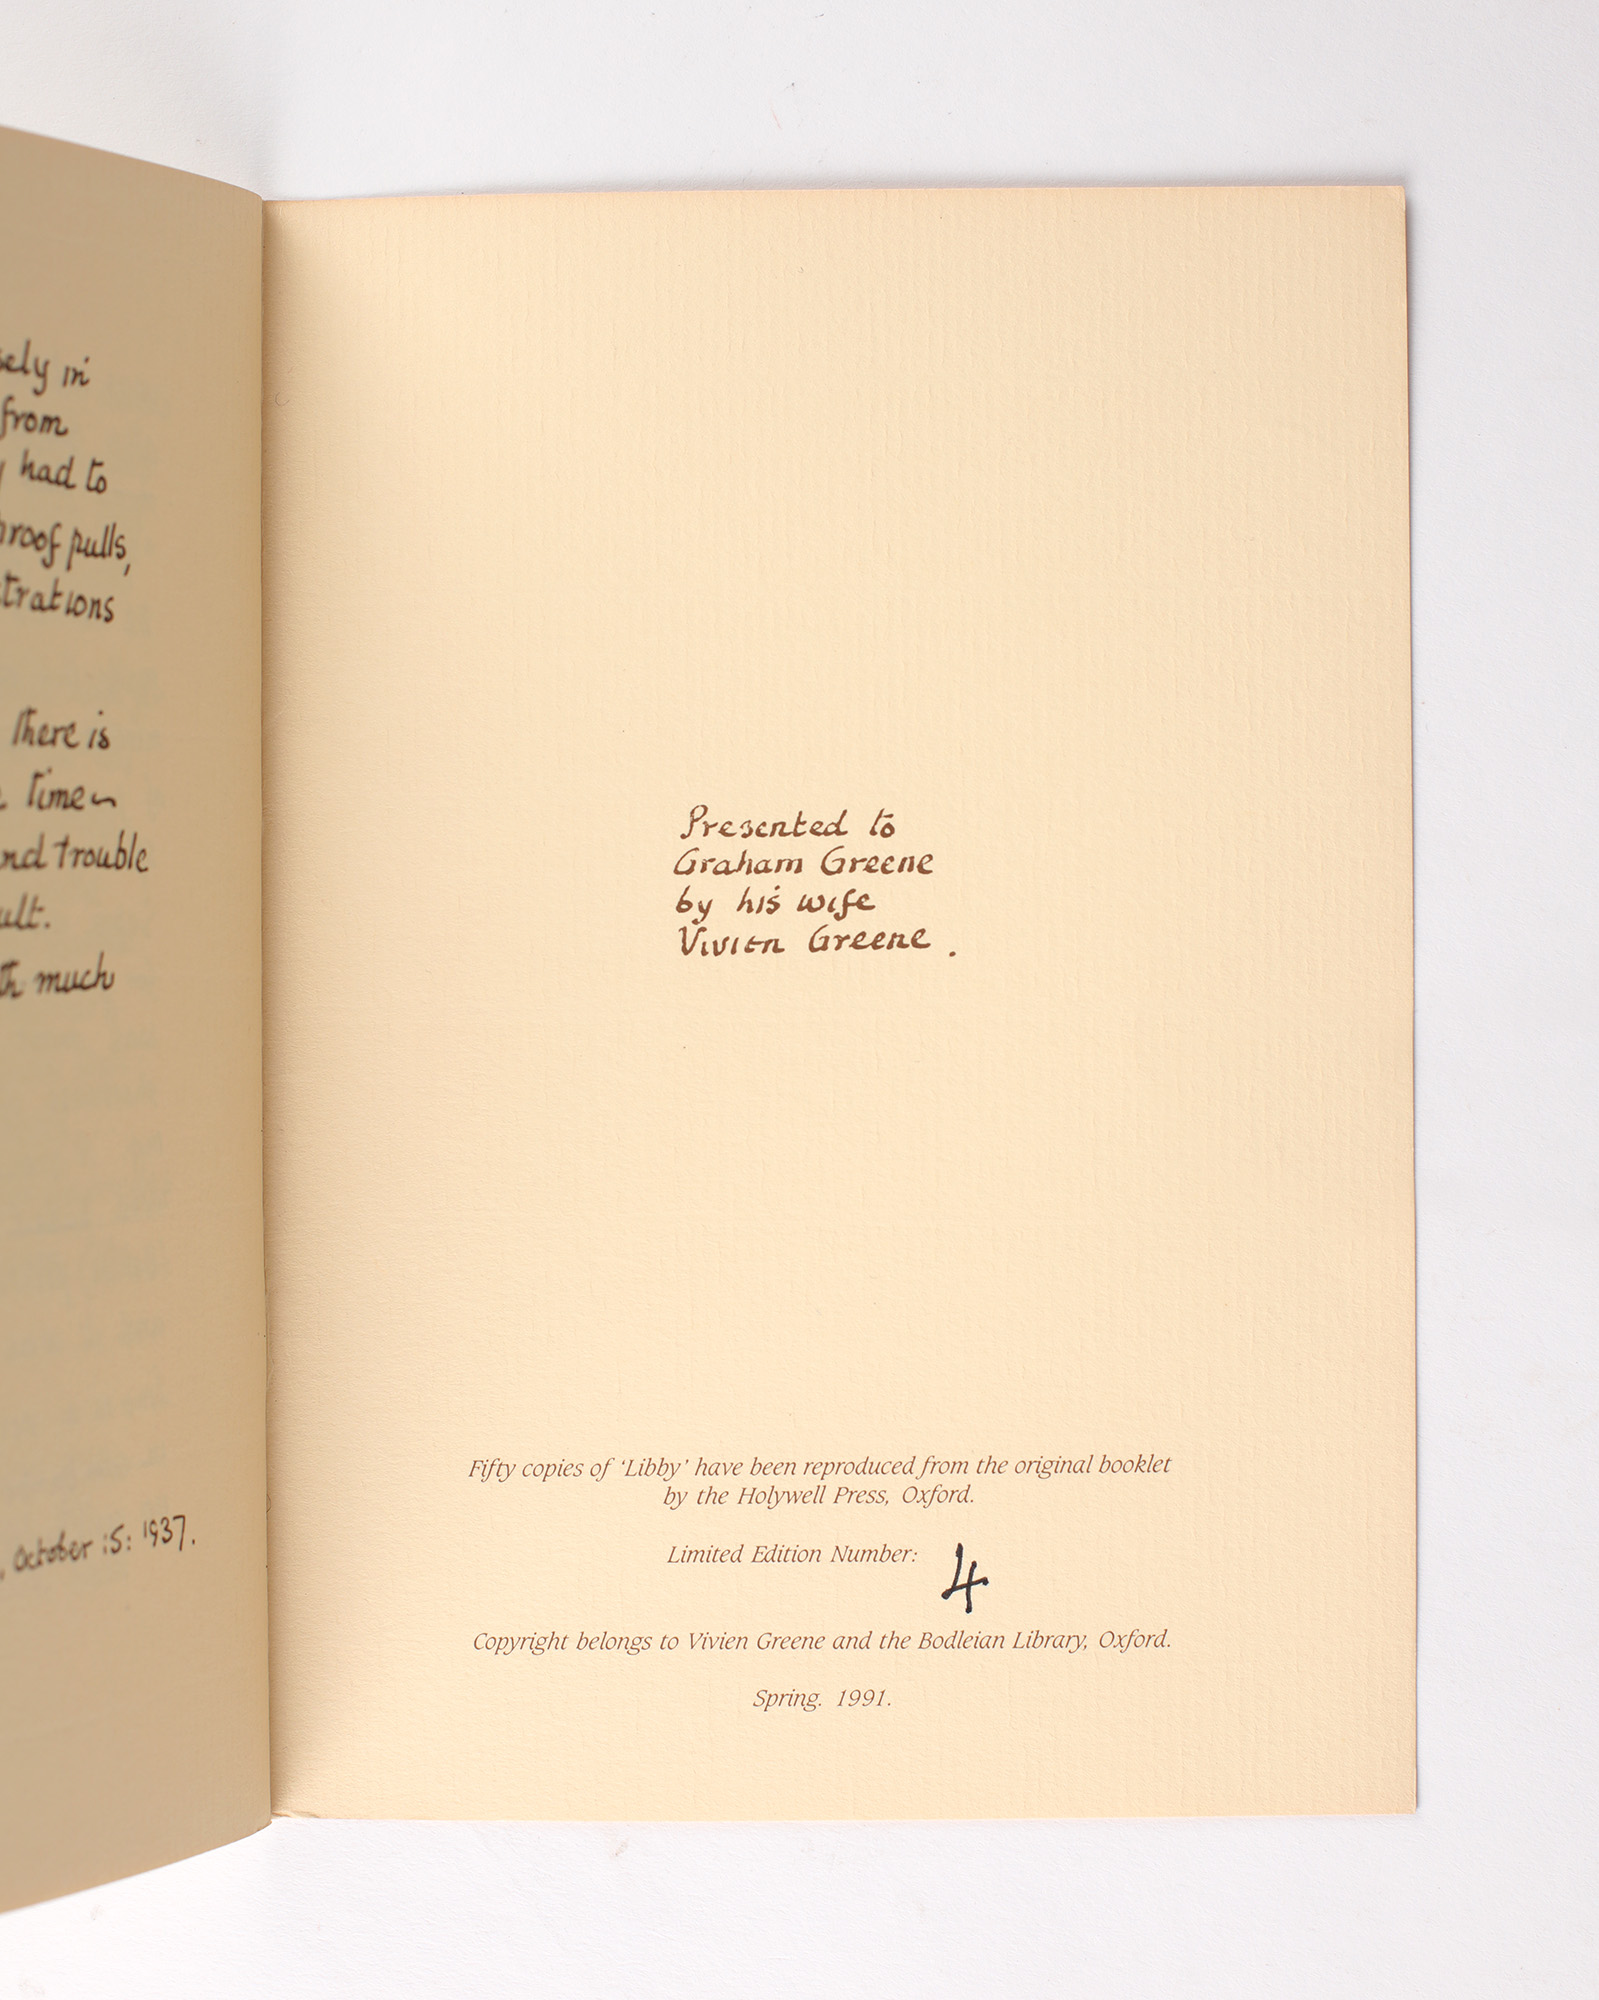 in
from
had to
proof pulls,
There is
time
trouble
much
October 15: 1937.
Presented to
Graham Greene
by his wife
Vivien Greene .
Fifty copies of ‘Libby’ have been reproduced from the original booklet
by the Holywell Press, Oxford.
Limited Edition Number: 4
Copyright belongs to Vivien Greene and the Bodleian Library, Oxford.
Spring. 1991.